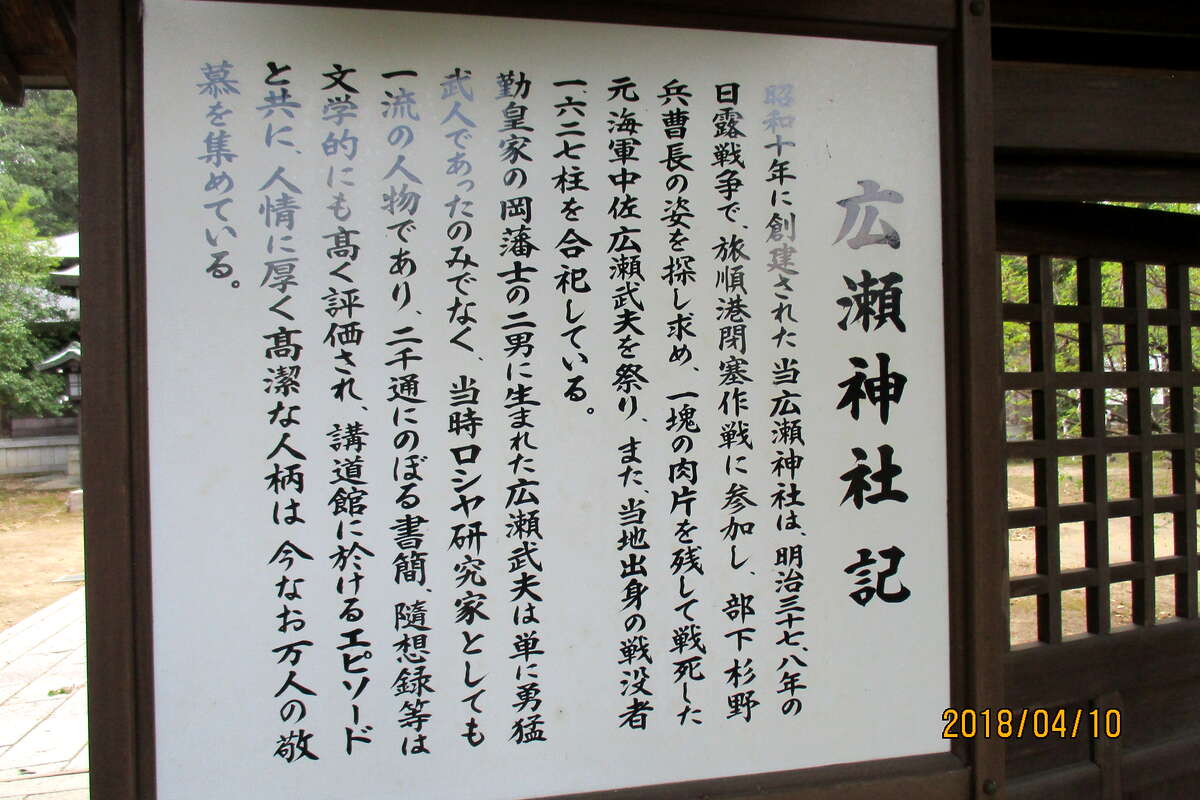 広瀬神社記
昭和十年に創建された当広瀬神社は、明治三十七、八年の
日露戦争で、旅順港閉塞作戦に参加し、部下杉野
兵曹長の姿を探し求め、一塊の肉片を残して戦死した
元海軍中佐広瀬武夫を祭り、また、当地出身の戦没者
一、六二七柱を合祀している。
勤皇家の岡藩士の二男に生まれた広瀬武夫は単に勇猛
武人であったのみでなく、当時ロシヤ研究家としても
一流の人物であり、二千通にのぼる書簡、随想録等は
文学的にも高く評価され、講道館に於けるエピソード
と共に、人情に厚く高潔な人柄は今なお万人の敬
慕を集めている。
2018/04/10